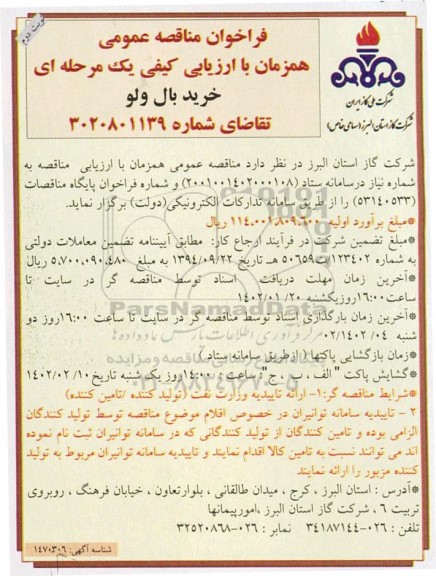 نوبت دوم
فراخوان مناقصه عمومی
همزمان با ارزیابی کیفی یک مرحله ای
خرید بال ولو
تقاضای شماره ۳۰۲۰۸۰۱۱۳۹
شرکت ملی گاز ایران
شرکت گاز استان البرز (سهامی خاص)
شرکت گاز استان البرز در نظر دارد مناقصه عمومی همزمان با ارزیابی مناقصه به
شماره نیاز درسامانه ستاد (۲۰۰۱۰۰۱۴۰۲۰۰۰۱۰۸) و شماره فراخوان پایگاه مناقصات
(۵۳۱۴۰۵۳۳) را از طریق سامانه تدارکات الکترونیکی(دولت) برگزار نماید.
*مبلغ برآورد اولیه ۱۱۴.۰۰۱.۸۰۹.۶۰۰ ریال
*مبلغ تضمین شرکت در فرآیند ارجاع کار: مطابق آییننامه تضمین معاملات دولتی
به شماره ۱۲۳۴۰۲/ت۵۰۶۵۹ هـ تاریخ ۱۳۹۴/۰۹/۲۲ به مبلغ ۵,۷۰۰,۰۹۰,۴۸۰ ریال
*آخرین زمان مهلت دریافت اسناد توسط مناقصه گر در سایت تا
ساعت ۱۶:۰۰روزیکشنبه ۲۰/ ۱۴۰۲/۰۱
*آخرین زمان بارگذاری اسناد توسط مناقصه گر در سایت تا ساعت ۱۶:۰۰روز دو
شنبه ۰۴/ ۰۲/۱۴۰۲
*زمان بازگشایی پاکتها ( ازطریق سامانه ستاد )
*گشایش پاکت " الف ، ب ، ج": ساعت : ۱۴:۰۰روز یک شنبه تاریخ۱۰/ ۱۴۰۲/۰۲
*شرایط مناقصه گر:۱- ارائه تاییدیه وزارت نفت (تولید کننده /تامین کننده)
۲ - تاییدیه سامانه توانیران در خصوص اقلام موضوع مناقصه توسط تولید کنندگان
الزامی بوده و تامین کنندگان از تولید کنندگانی که در سامانه توانیران ثبت نام نموده
اند می توانند نسبت به تامین کالا اقدام نمایند و تاییدیه سامانه توانیران مربوط به تولید
کننده مزبور را ارائه نمایند
*آدرس : استان البرز ، کرج ، میدان طالقانی ، بلوارتعاون ، خیابان فرهنگ ، روبروی
تربیت ۶ ، شرکت گاز استان البرز ،امورپیمانها
تلفن : ۰۲۶-۳۴۱۸۷۱۴۴ نمابر : ۰۲۶-۳۲۵۲۰۸۶۸
شناسه آگهی: ۱۴۷۰۳۰۶
ParsNamadData
مرکز فرآوری اطلاعات پارس نماد داده ها